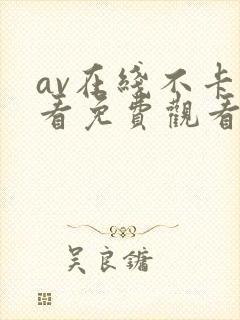 av在綫不卡
看免費觀看
吴良鏞